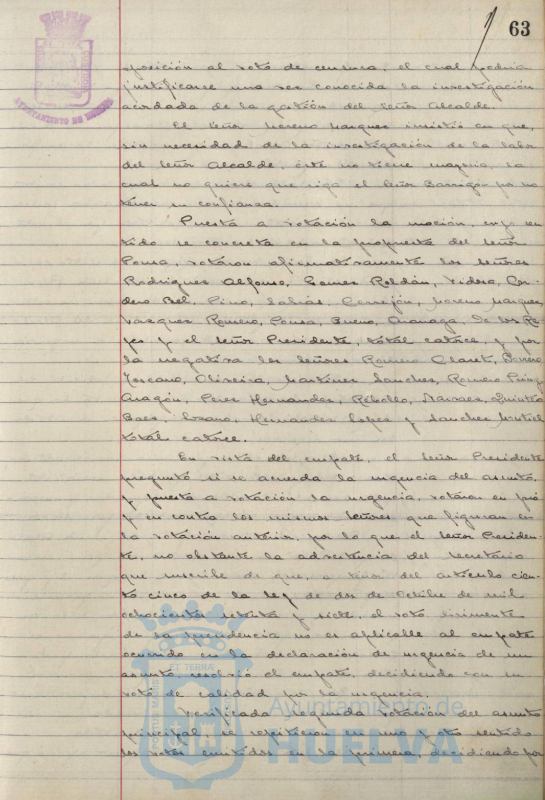 63
AYUNTAMIENTO DE HUELVA
posición al voto de censura, el cual podría
justificarse una vez conocida la investigación
acordada de la gestión del Señor Alcalde.
El Señor Moreno Marquez insistió en que,
sin necesidad de la investigación de la labor
del Señor Alcalde, éste no tiene mayoría, la
cual no quiere que siga el Señor Barrigón por no
tener su confianza.
Puesta a votación la moción, cuyo sen-
tido se concreta en la propuesta del Señor
Ponsa, votaron afirmativamente los Señores
Rodriguez Alfonso, Gomez Roldán, Cor-
dero Bel, Pino, Cerrejón, Moreno Marquez,
Vazquez Romero, Ponsa, Bueno, de los Re-
yes y el Señor Presidente, total catorce, y por
la negativa los Señores Romero Claret, Borrero
Toscano, Oliveira, Martinez Sanchez, Romero
Aragón, Perez Hernandez, Rebollo, Narvaez, Quintero
Baez, Lozano, Hernandez Lopez y Sanchez Montiel
total catorce.
En vista del empate, el Señor Presidente
preguntó si se acuerda la urgencia del asunto,
y puesta a votación la urgencia, votaron en pró
y en contra los mismos Señores que figuran en
la votación anterior, por lo que el Señor Presiden-
te, no obstante la advertencia del Secretario
que suscribe de que, a tenor del artículo cien-
to cinco de la ley de dos de Octubre de mil
ochocientos setenta y siete, el voto dirimente
de la presidencia no es aplicable al empate
ocurrido en la declaración de urgencia de un
asunto, resolvió el empate, decidiendo con su
voto de calidad por la urgencia.
Verificada segunda votación del asunto
principal, se repitieron en uno y otro sentido
los votos emitidos en la primera, decidiendo por
PORTUS MARIS ET TERRAE
Ayuntamiento de
HUELVA